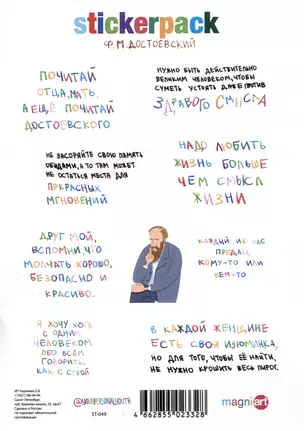 stickerpack
Ф.М.ДОСТОЕВСКИЙ
ПОЧИТАЙ
ОТЦА, МАТЬ,
А ЕЩЁ ПОЧИТАЙ
ДОСТОЕВСКОГО
НУЖНО БЫТЬ ДЕЙСТВИТЕЛЬНО
ВЕЛИКИМ ЧЕЛОВЕКОМ, ЧТОБЫ
СУМЕТЬ УСТОЯТЬ ДАЖЕ ПРОТИВ
ЗДРАВОГО СМЫСЛА
НЕ ЗАСОРЯЙТЕ СВОЮ ПАМЯТЬ
ОБИДАМИ, А ТО ТАМ МОЖЕТ
НЕ ОСТАТЬСЯ МЕСТА ДЛЯ
ПРЕКРАСНЫХ
МГНОВЕНИЙ
НАДО ЛЮБИТЬ
ЖИЗНЬ БОЛЬШЕ
ЧЕМ СМЫСЛ
ЖИЗНИ
ДРУГ МОЙ,
ВСПОМНИ, ЧТО
МОЛЧАТЬ ХОРОШО,
БЕЗОПАСНО И
КРАСИВО.
КАЖДЫЙ ИЗ НАС
ПРЕДАН,
КОМУ-ТО ИЛИ
КЕМ-ТО
Я ХОЧУ ХОТЬ
С ОДНИМ
ЧЕЛОВЕКОМ
ОБО ВСЁМ
ГОВОРИТЬ,
КАК С СОБОЙ
В КАЖДОЙ ЖЕНЩИНЕ
ЕСТЬ СВОЯ ИЗЮМИНКА,
НО ДЛЯ ТОГО, ЧТОБЫ ЕЁ НАЙТИ,
НЕ НУЖНО КРОШИТЬ ВЕСЬ ПИРОГ.
Санкт-Петербург
Сделано в России
ST-049
4 662855 023328
magniart